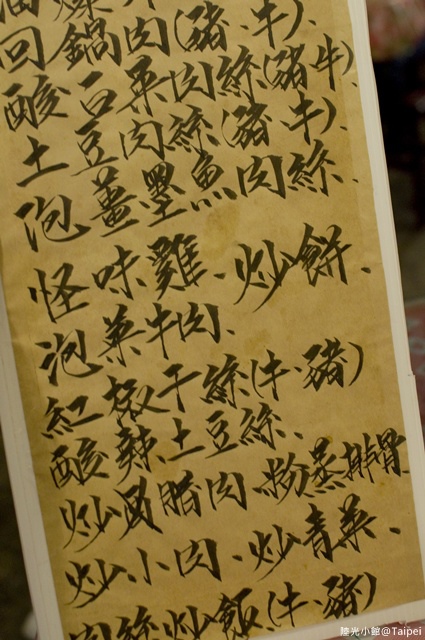 回鍋肉(豬、牛)、
酸白菜肉絲(豬牛)、
土豆肉絲(豬牛)、
泡薑墨魚肉絲、
怪味雞、炒餅、
泡菜牛肉、
紅椒干絲(牛、豬)
酸辣土豆絲、
炒臘肉、粉蒸排骨
炒小肉、炒青菜、
肉絲炒飯(牛、豬)
陸光小館@Taipei